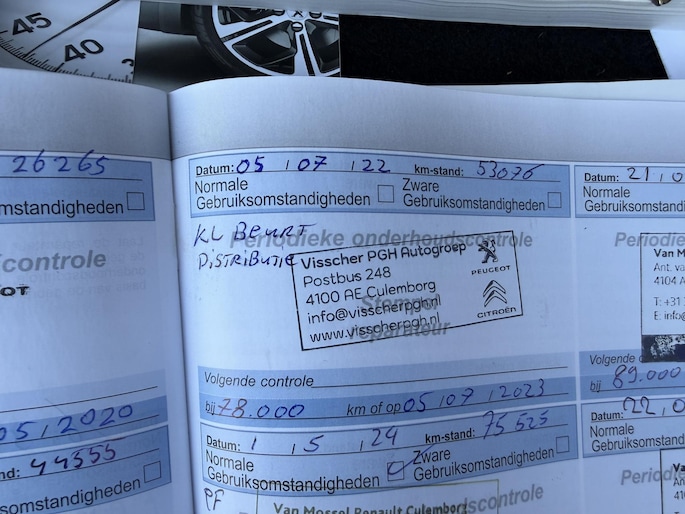 45
40
3
26265
mstandigheden
controle
OT
05/2020
nd: 44555
omstandigheden
Datum: 05 / 07 / 22 km-stand: 53076
Normale Gebruiksomstandigheden
Zware Gebruiksomstandigheden
KL BEURT
DISTRIBUTIE
Periodieke onderhoudscontrole
Visscher PGH Autogroep
Postbus 248
4100 AE Culemborg
info@visscherpgh.nl
www.visscherpgh.nl
PEUGEOT
CITROËN
Stempel
reparateur
Volgende controle
bij 78.000 km of op 05 / 07 / 2023
Datum: 1 / 5 / 24 km-stand: 75525
Normale Gebruiksomstandigheden
Zware Gebruiksomstandigheden
PF
Van Mossel Renault Culemborg
scontrole
Datum: 21 / 0
Normale
Gebruiksomstandigheden
Periodi
Van M
Ant. va
4104 A
T: +31
E: info
Volgende
bij 89.000
Datum: 22 / 0
Normale
Gebruiksomstandig
Periodiek
Va
An
41